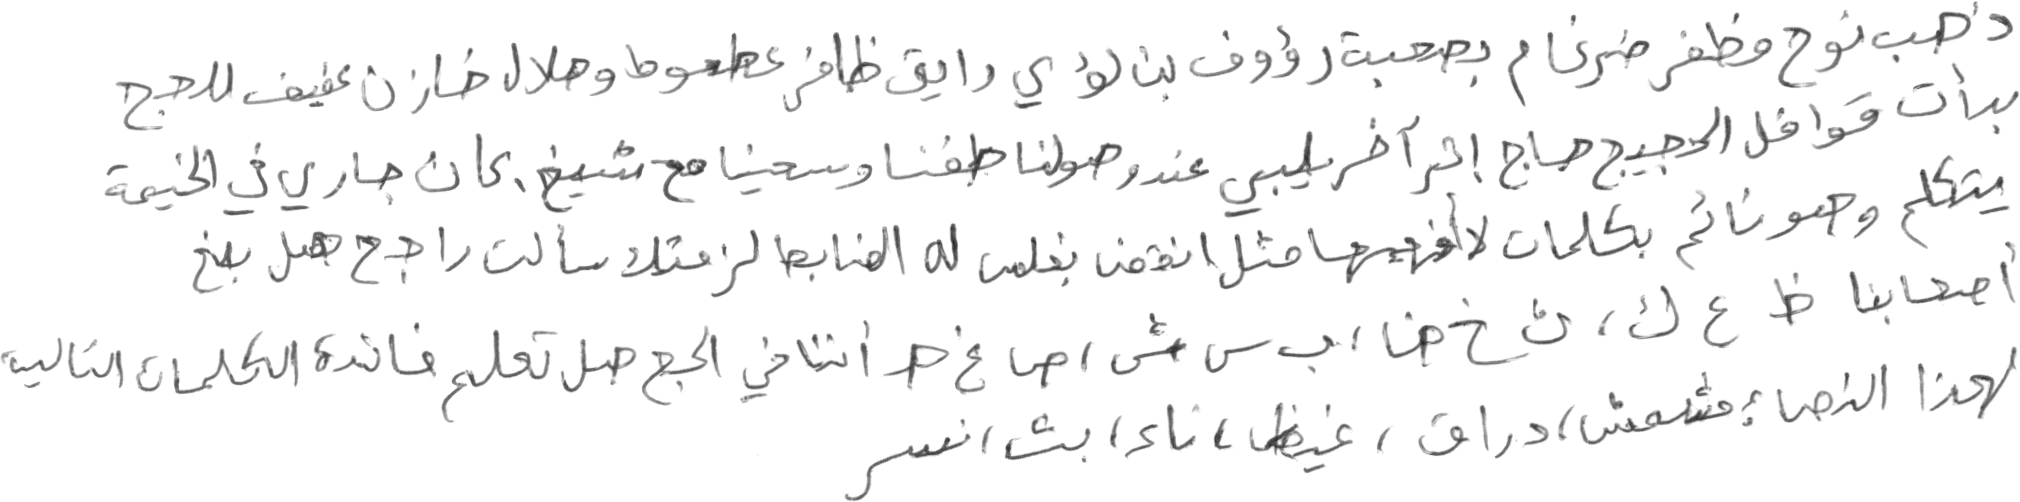 ذهب نوح مظفر ضرغام بصحبة رؤوف بن لؤي رايق ظافر عطعوط وهلال خازن عفيف للحج
بدأت قوافل الحجيج حاج إثر آخر يلبي عند وصولنا طفنا وسعينا مع شيخ. كان جاري في الخيمة
يتكلم وهو نائم بكلمات لا أفهمها مثل انفض بغلس له الضابط لزمتك سألت راجح هل بلغ
أصحابنا ظ ع ك، ث خ ض، ب س ش، ص غ ط أننا في الحج هل تعلم فائدة الكلمات التالية
لهذا النص؟ مشمش، دراق، غيظ، ناء، بث، نسر